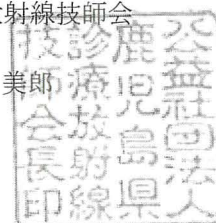 射線技師会
美郎
公益社団法人
鹿児島県
診療放射線
技師会長印